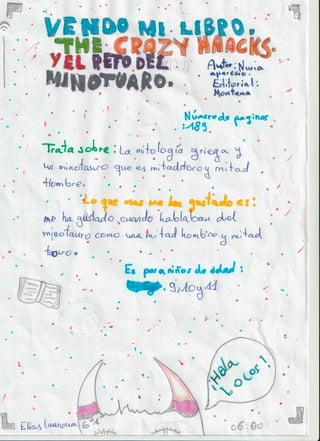 VENDO MI LIBRO.
THE CRAZY HAACKS.
Y EL RETO DEL
MINOTUARO.
Autor: Nuria
aparicio.
Editorial:
Montena
Número de paginas
:189.
Trata sobre: La mitología griega y
un minotauro que es mitaddtoro y mitad
Hombre.
Lo que mas me ha gustado es:
me ha gustado cuando hablaban del
minotauro como una mitad hombre y mitad
touro.
Es para niños de edad:
9,10 y 11
¡Hola
Locos!
6º
06:00